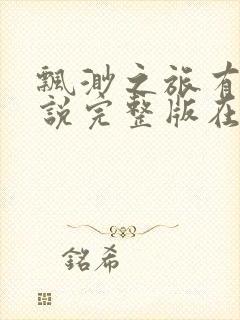 飄渺之旅有
說完整版在
銘希